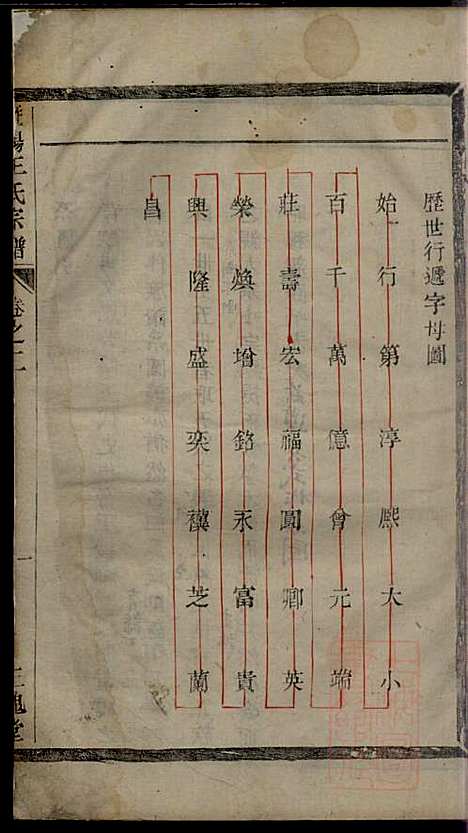 歷世行遞字母圖
始一行第淳熙大小
百千萬億會元端
莊壽宏福圓卿英
榮煥增銘永富貴
興隆盛奕襈芝蘭
昌
陽王氏宗譜
卷之二
一
三槐堂